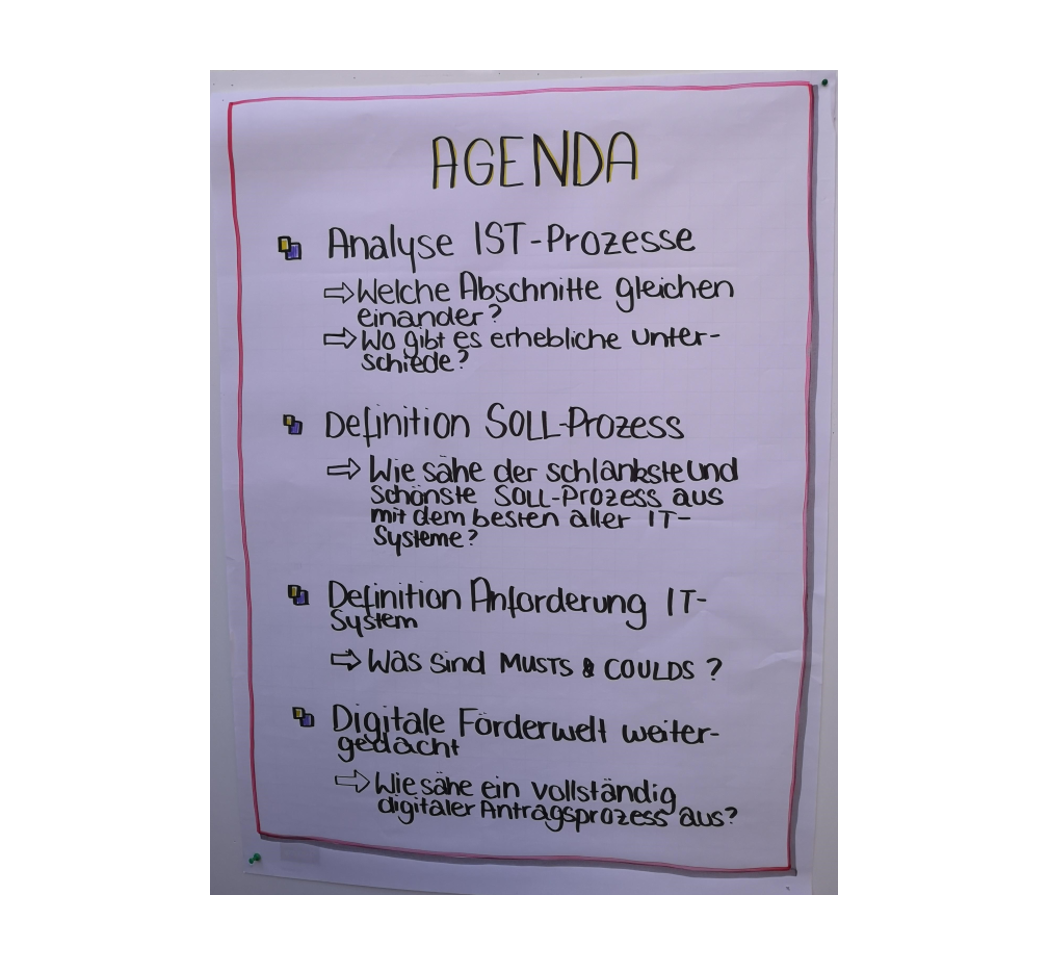 AGENDA
Analyse IST-Prozesse
⇨ Welche Abschnitte gleichen
einander?
⇨ Wo gibt es erhebliche Unter-
schiede?
Definition SOLL-Prozess
⇨ Wie sähe der schlankste und
schönste SOLL-Prozess aus
mit dem besten aller IT-
Systeme?
Definition Anforderung IT-
System
⇨ Was sind MUSTS & COULDS ?
Digitale Förderwelt weiter-
gedacht
⇨ Wie sähe ein vollständig
digitaler Antragsprozess aus?